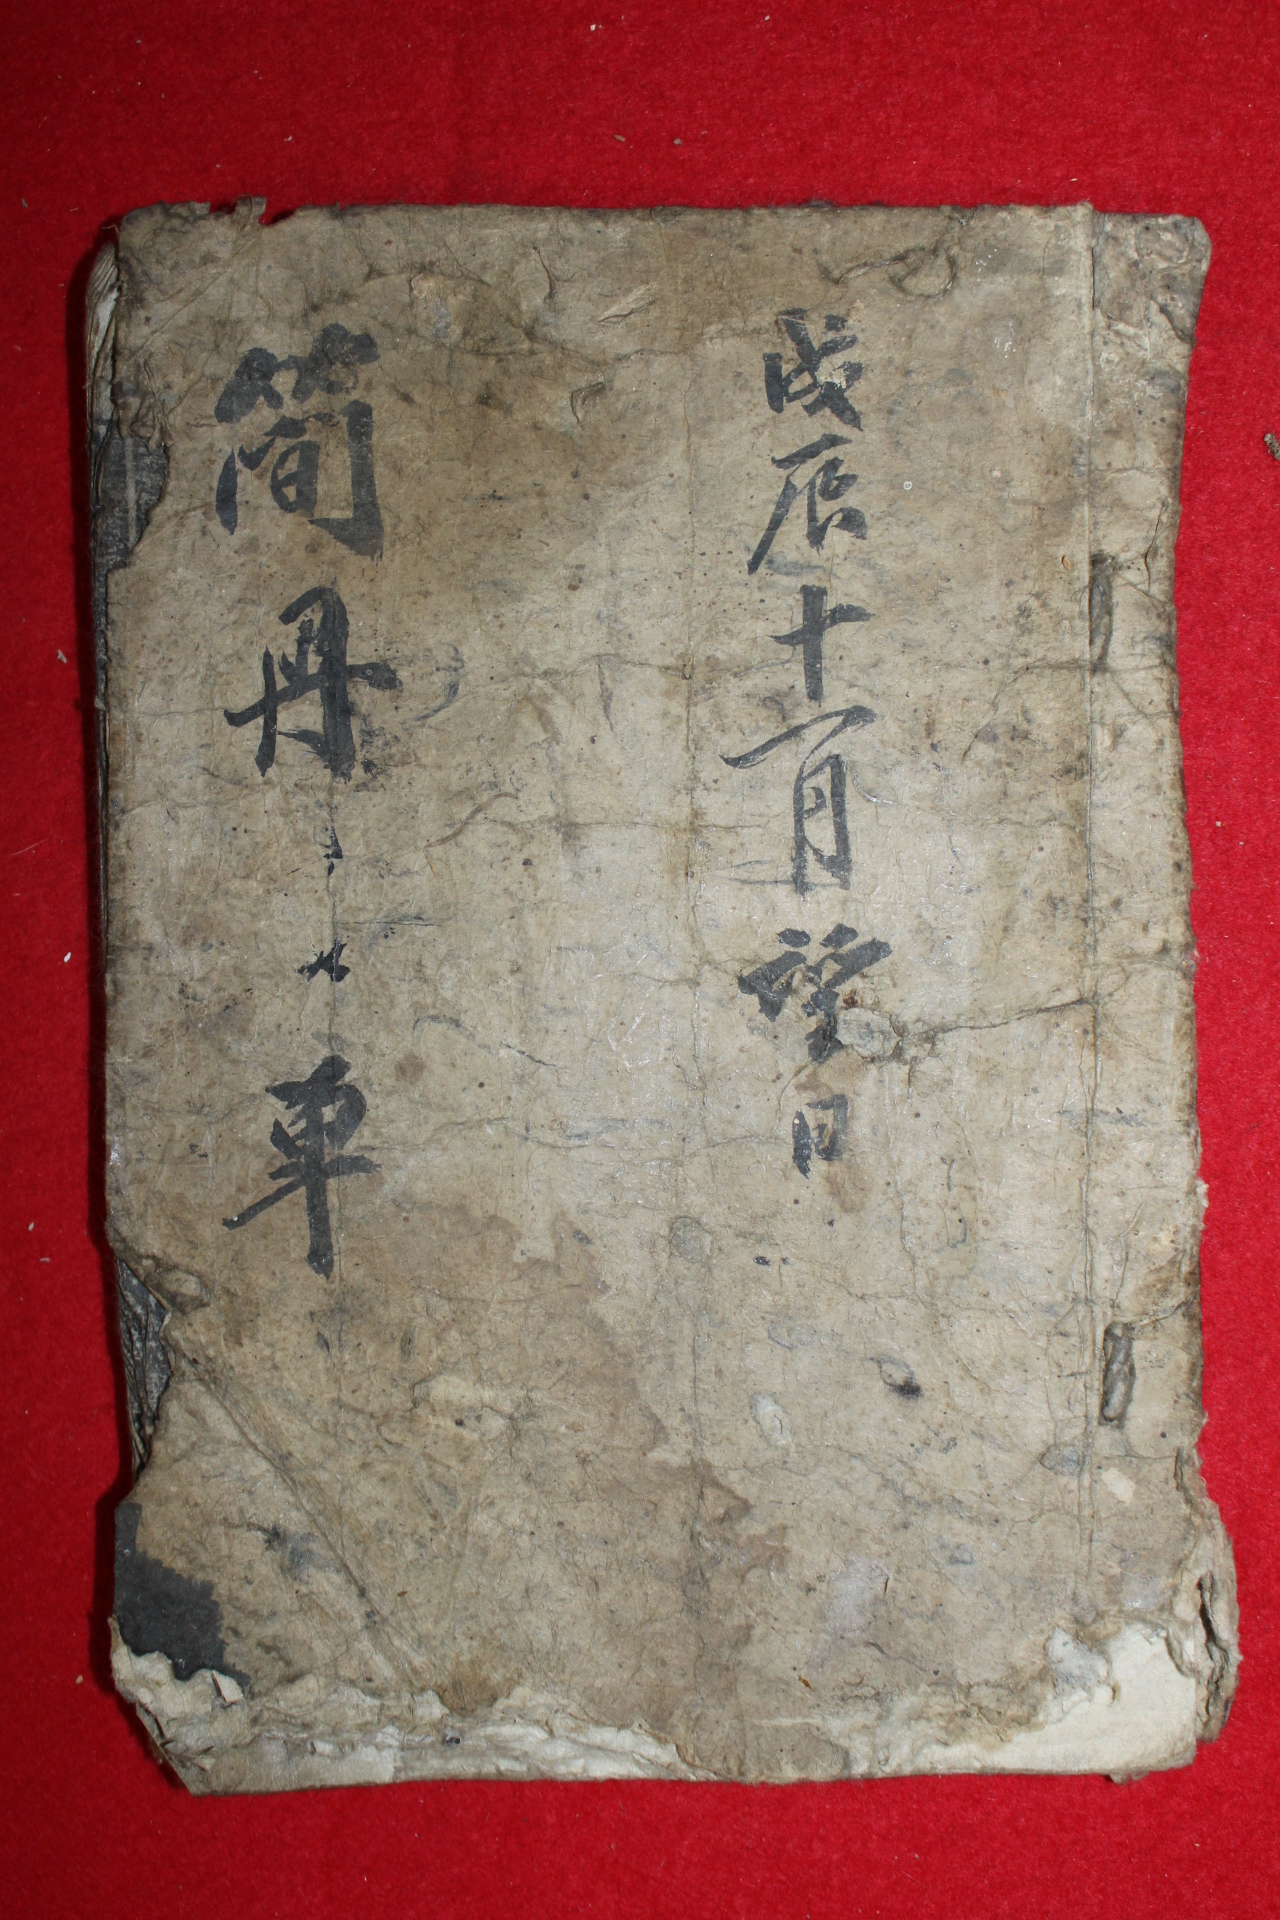 戊辰十一月望日
簡冊 車